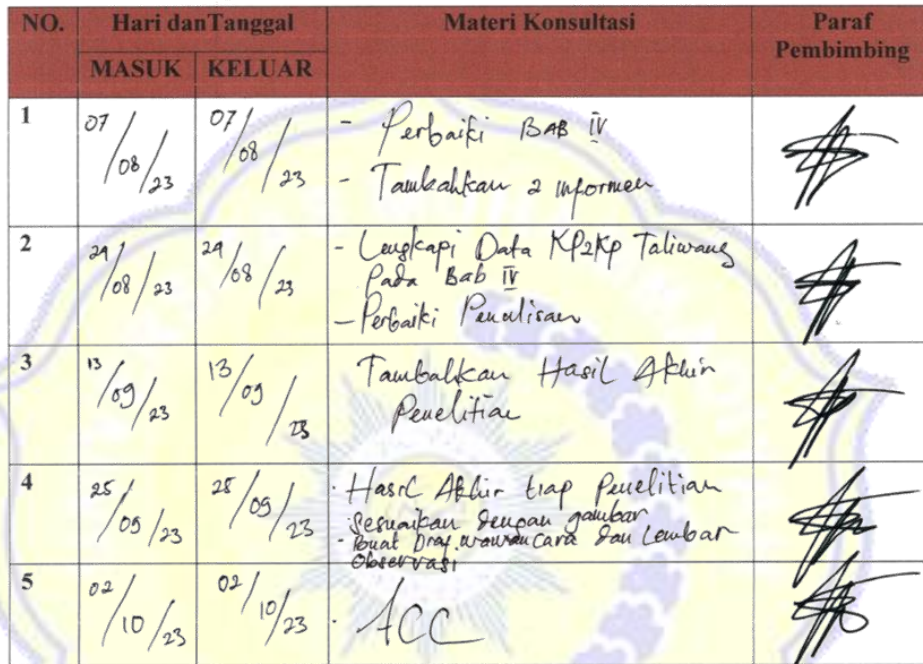 NO. Hari dan Tanggal Materi Konsultasi Paraf Pembimbing
MASUK KELUAR
1 07/08/23 07/08/23 - Perbaiki BAB IV
- Tambahkan 2 informen
2 29/08/23 29/08/23 - Lengkapi Data KP2KP Taliwang
Pada Bab IV
- Perbaiki Penulisan
3 13/09/23 13/09/23 Tambahkan Hasil Akhir
Penelitian
4 25/09/23 25/09/23 - Hasil Akhir tiap Penelitian
Sesuaikan dengan gambar
- Buat Draf wawancara dan Lembar
Observasi
5 02/10/23 02/10/23 - ACC